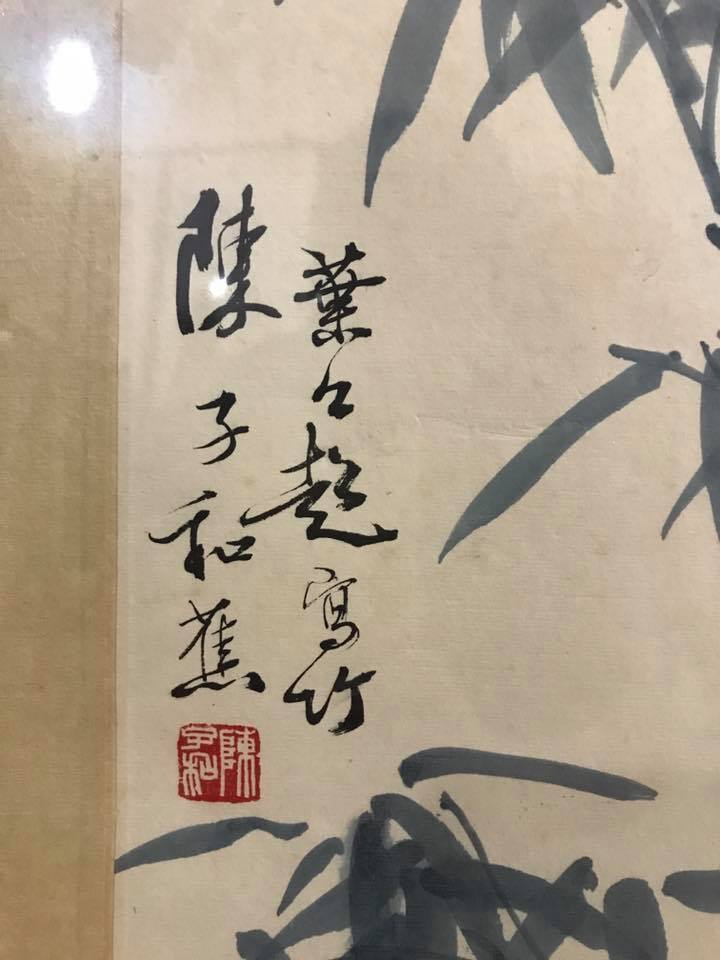 葉公超寫竹
陳子和蕉
陳子和